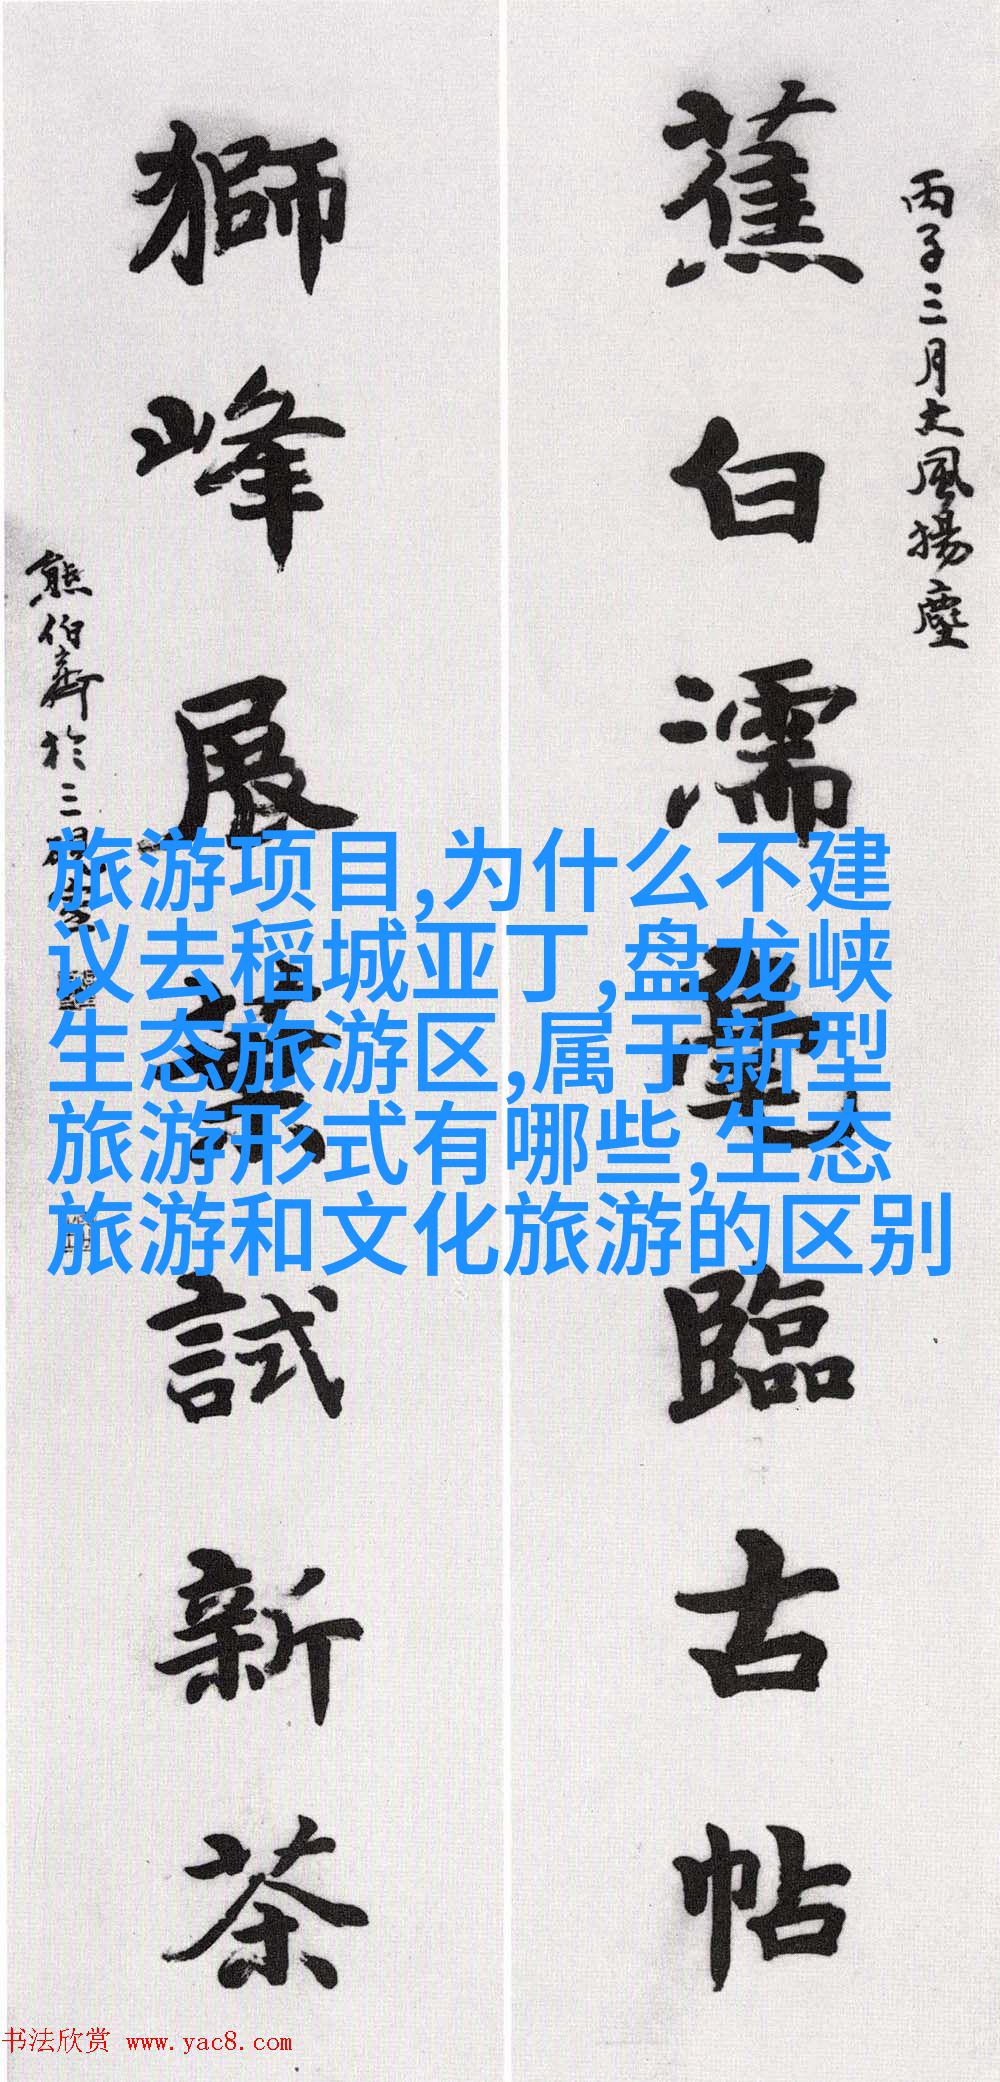 丙子三月大風揚塵
蕉白濡毫臨古帖
獅峰展葉試新茶
熊伯齊於三硯室
旅游项目,为什么不建
议去稻城亚丁,盘龙峡
生态旅游区,属于新型
旅游形式有哪些,生态
旅游和文化旅游的区别
书法欣赏 www.yac8.com